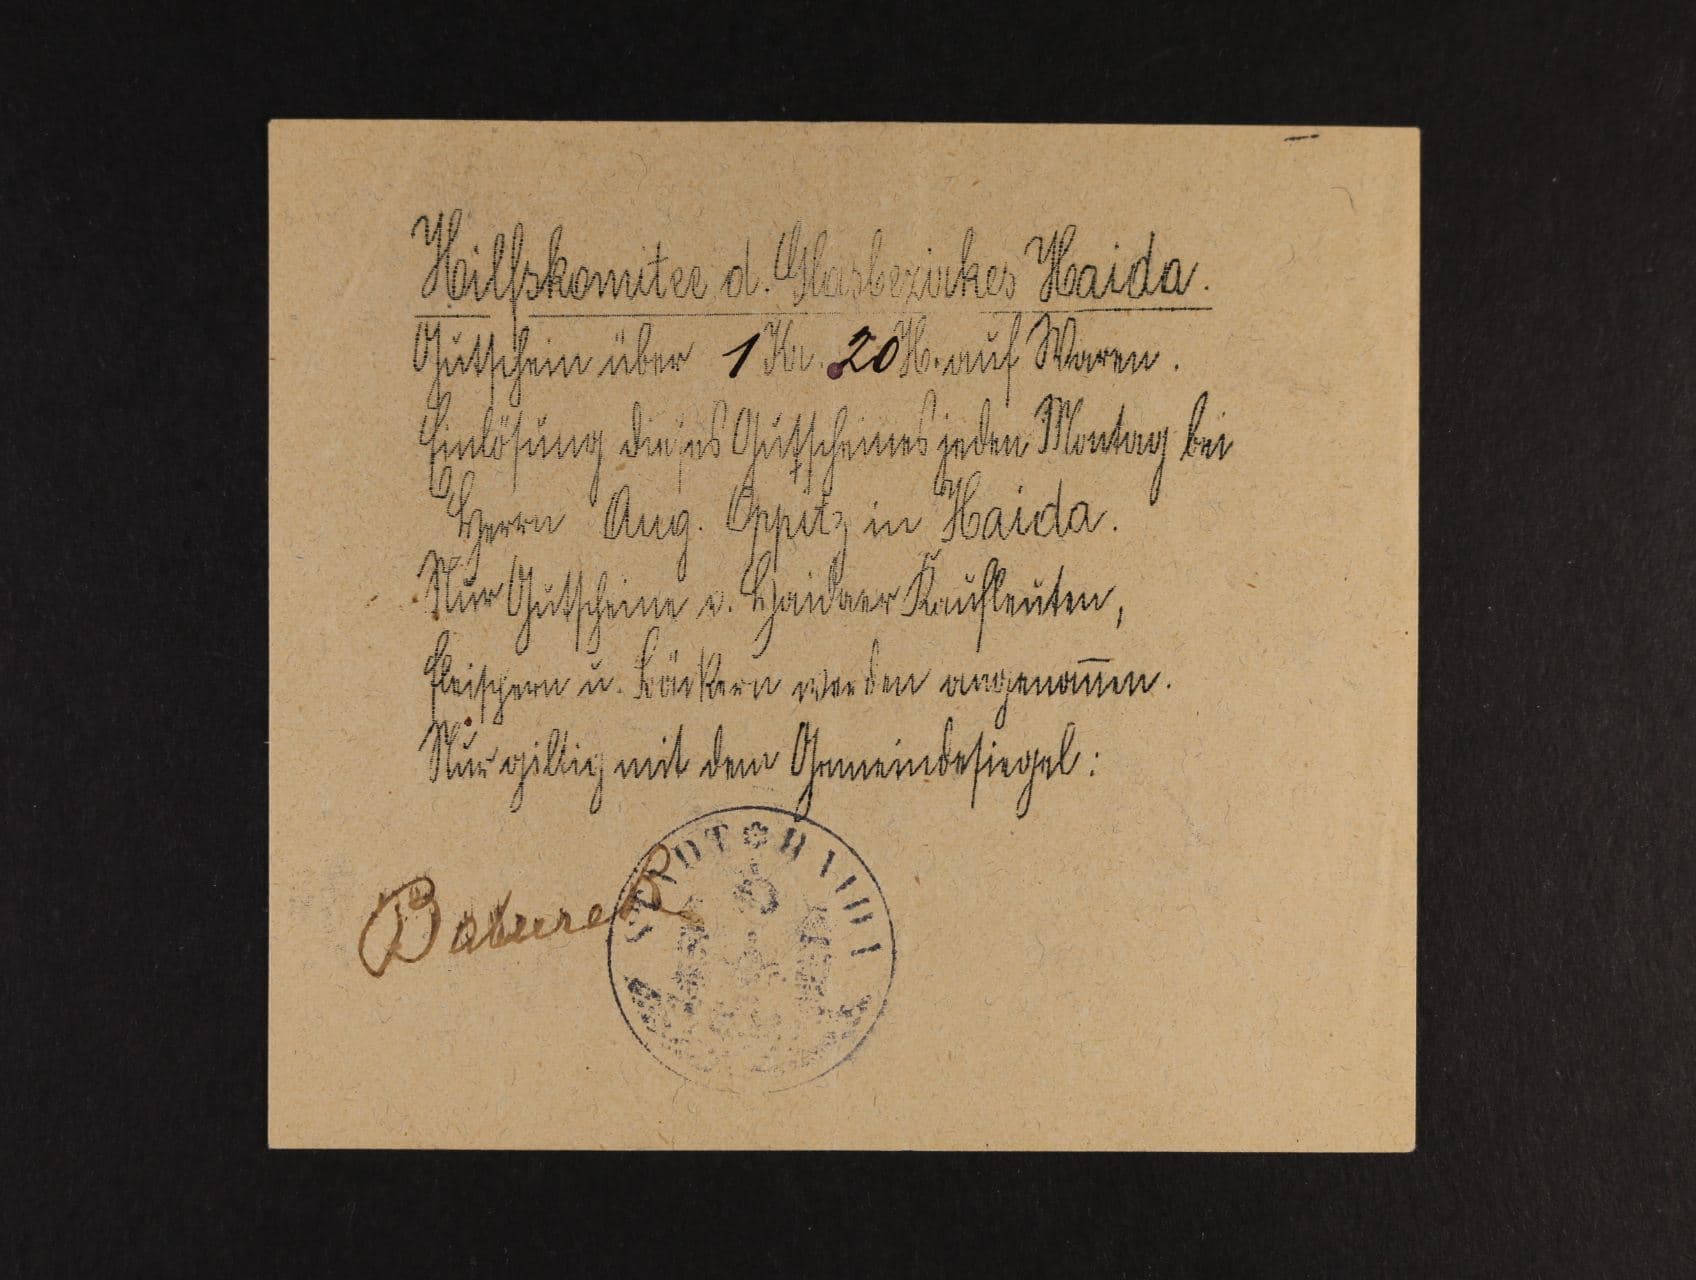 Hilfskomitee d. Glasbezirkes Haida.
Gutschein über 1 Kr. 20 H. auf Waren.
Einlösung dieses Gutscheines jeden Montag bei
Herrn Aug. Oppitz in Haida.
Nur Gutscheine v. Haidaer Kaufleuten,
Fleischern u. Bäckern werden angenom̅en.
Nur giltig mit dem Gemeindesiegel:
STADT * HAIDA